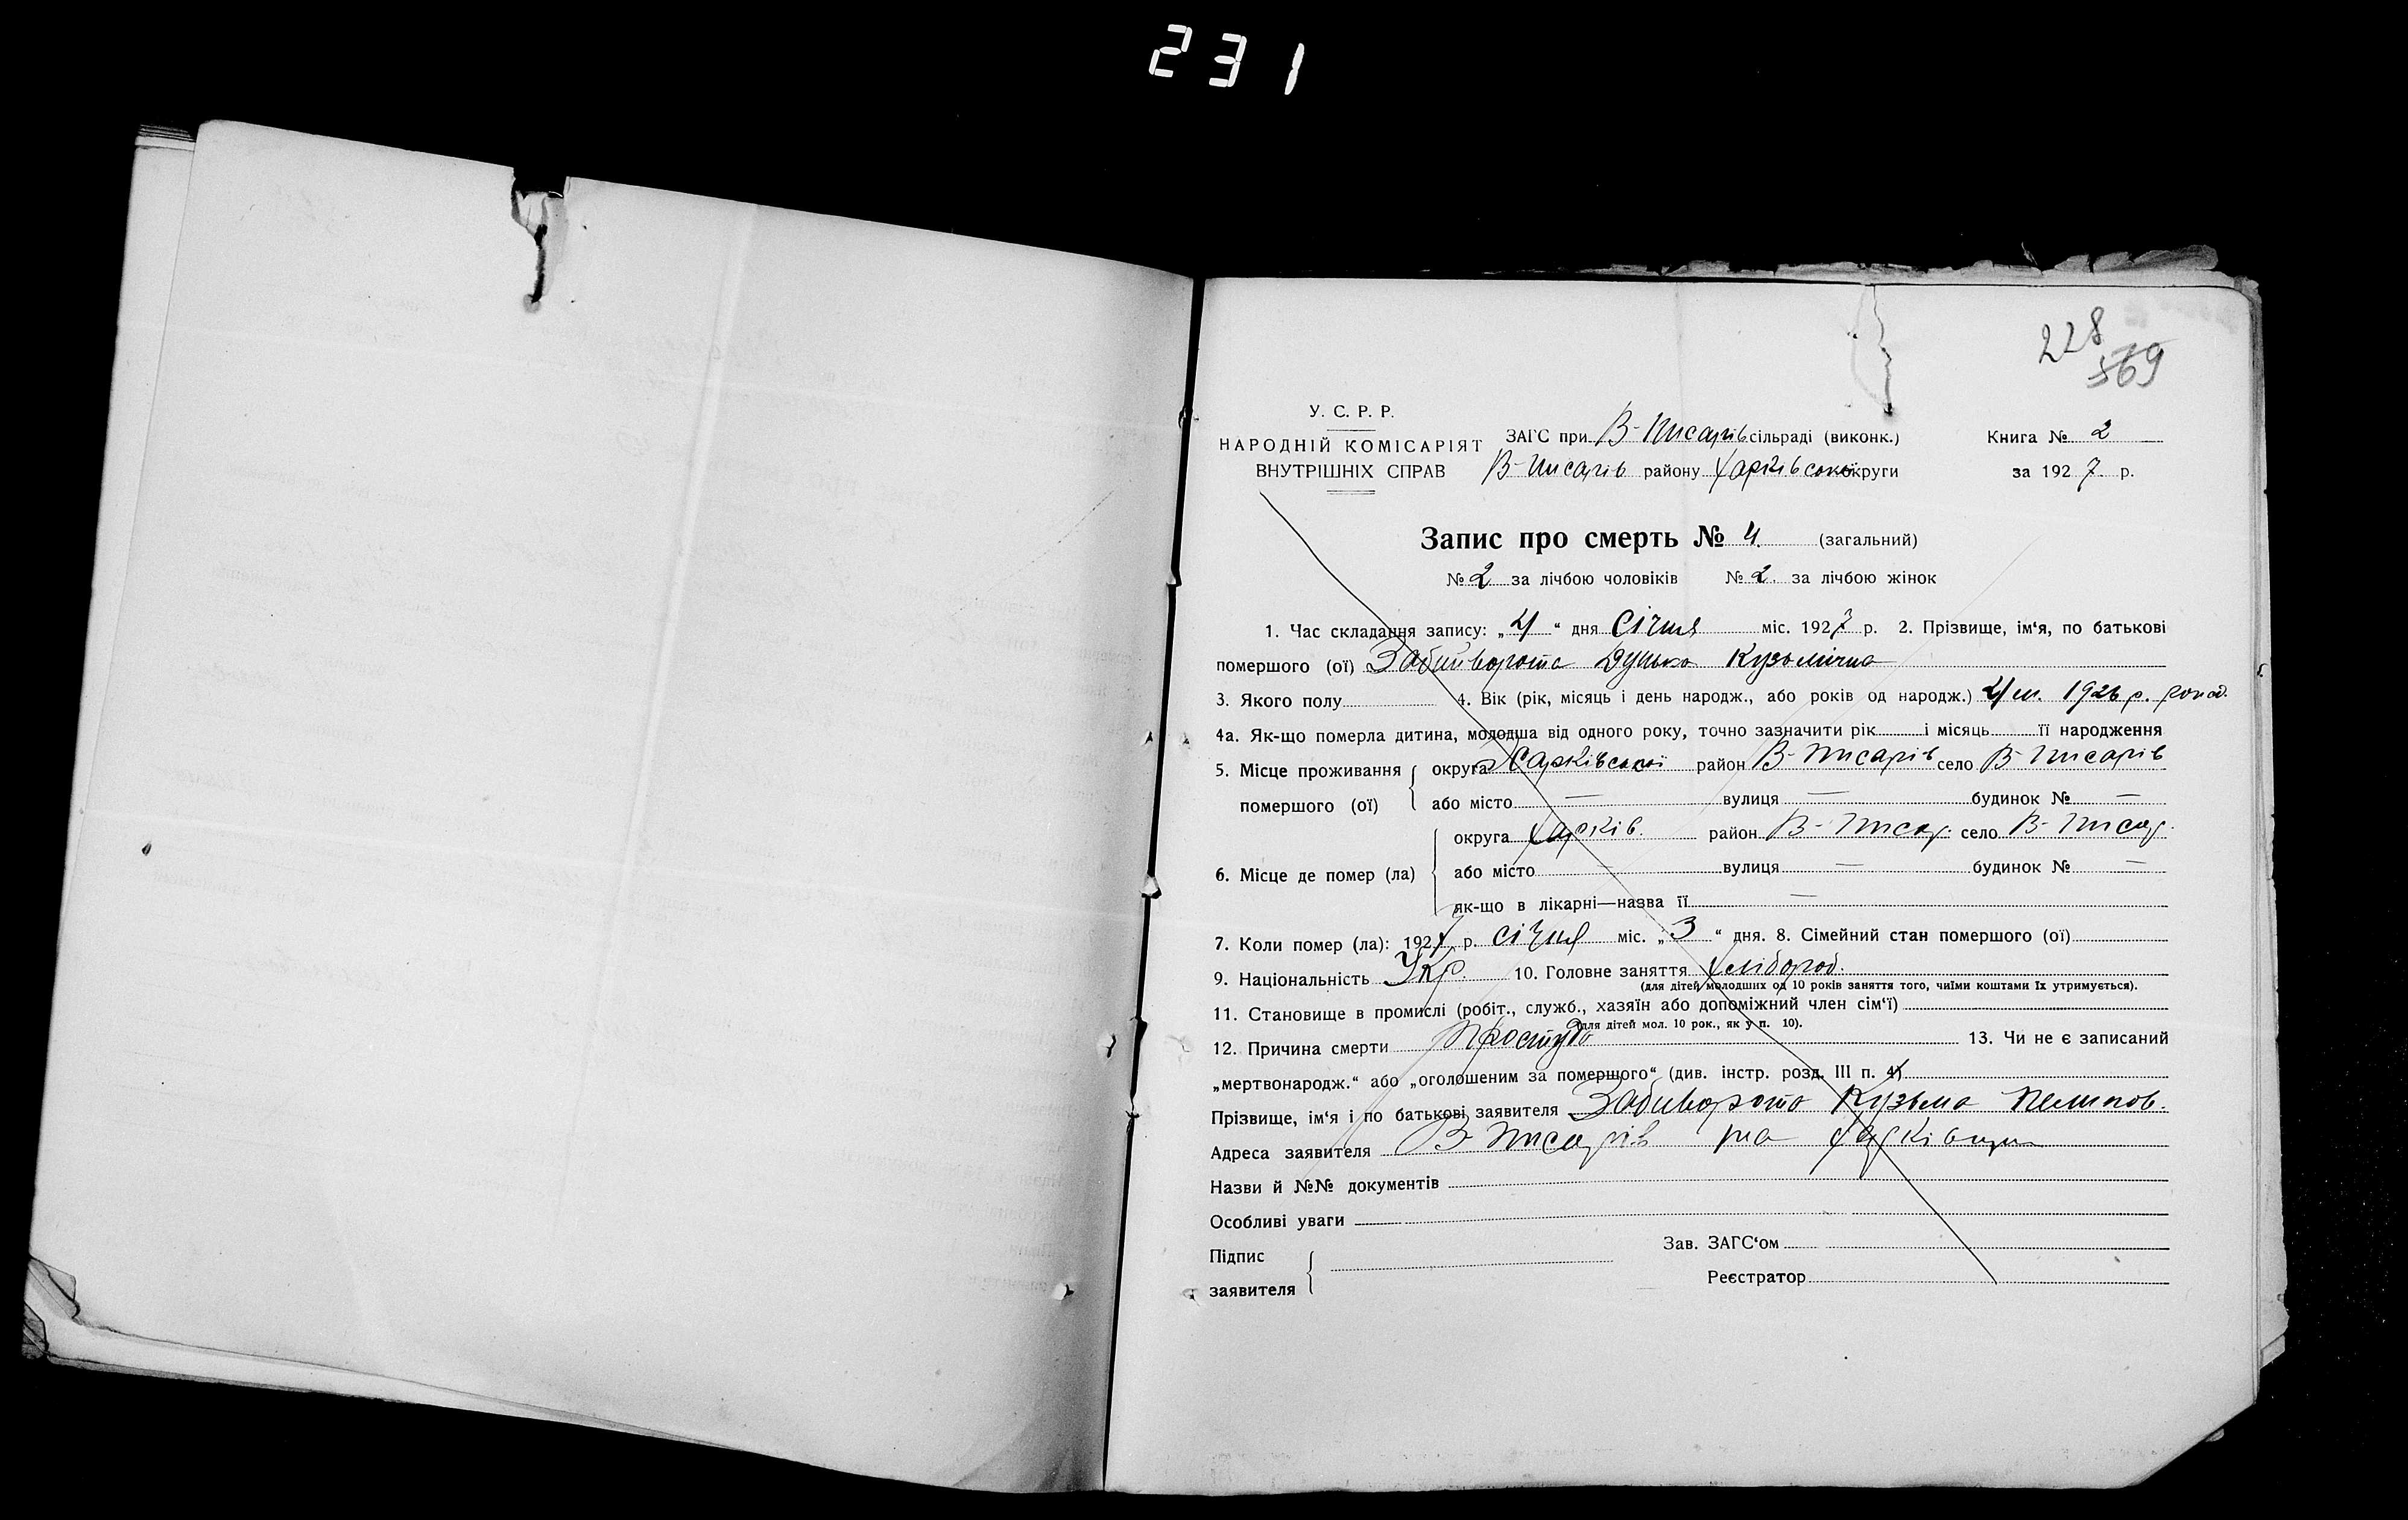 231
228
569
У. С. Р. Р.
НАРОДНІЙ КОМІСАРІЯТ
ВНУТРІШНІХ СПРАВ
ЗАГС при В-Писарів сільраді (виконк.)
В-Писарів району Харківської округи
Книга № 2
за 1927 р.
Запис про смерть № 4 (загальний)
№ 2 за лічбою чоловіків № 2. за лічбою жінок
1. Час складання запису: „4“ дня Січня міс. 1927 р. 2. Прізвище, ім‘я, по батькові
помершого (ої) Забийворота Дунька Кузьмічна
3. Якого полу 4. Вік (рік, місяць і день народж., або років од народж.) 4 м. 1926 р.
4а. Як-що померла дитина, молодша від одного року, точно зазначити рік і місяць її народження
5. Місце проживання помершого (ої) округа Харківської район В-Писарів село В-Писарів
або місто — вулиця — будинок № —
6. Місце де помер (ла) округа Харків. район В-Писар. село В-Писар.
або місто — вулиця — будинок № —
як-що в лікарні—назва її —
7. Коли помер (ла): 1927 р. січня міс. „3“ дня. 8. Сімейний стан помершого (ої)
9. Національність Укр. 10. Головне заняття Хлібороб.
(для дітей молодших од 10 років заняття того, чиїми коштами їх утримується).
11. Становище в промислі (робіт., служб., хазяїн або допоміжний член сім‘ї)
(для дітей мол. 10 рок., як у п. 10).
12. Причина смерти Простуда 13. Чи не є записаний
„мертвонародж.“ або „оголошеним за помершого“ (див. інстр. розд. III п. 4)
Прізвище, ім‘я і по батькові заявителя Забиворота Кузьма Пилипов.
Адреса заявителя В-Писарів на Харківщин
Назви й №№ документів
Особливі уваги
Підпис
заявителя
Зав. ЗАГС‘ом
Реєстратор